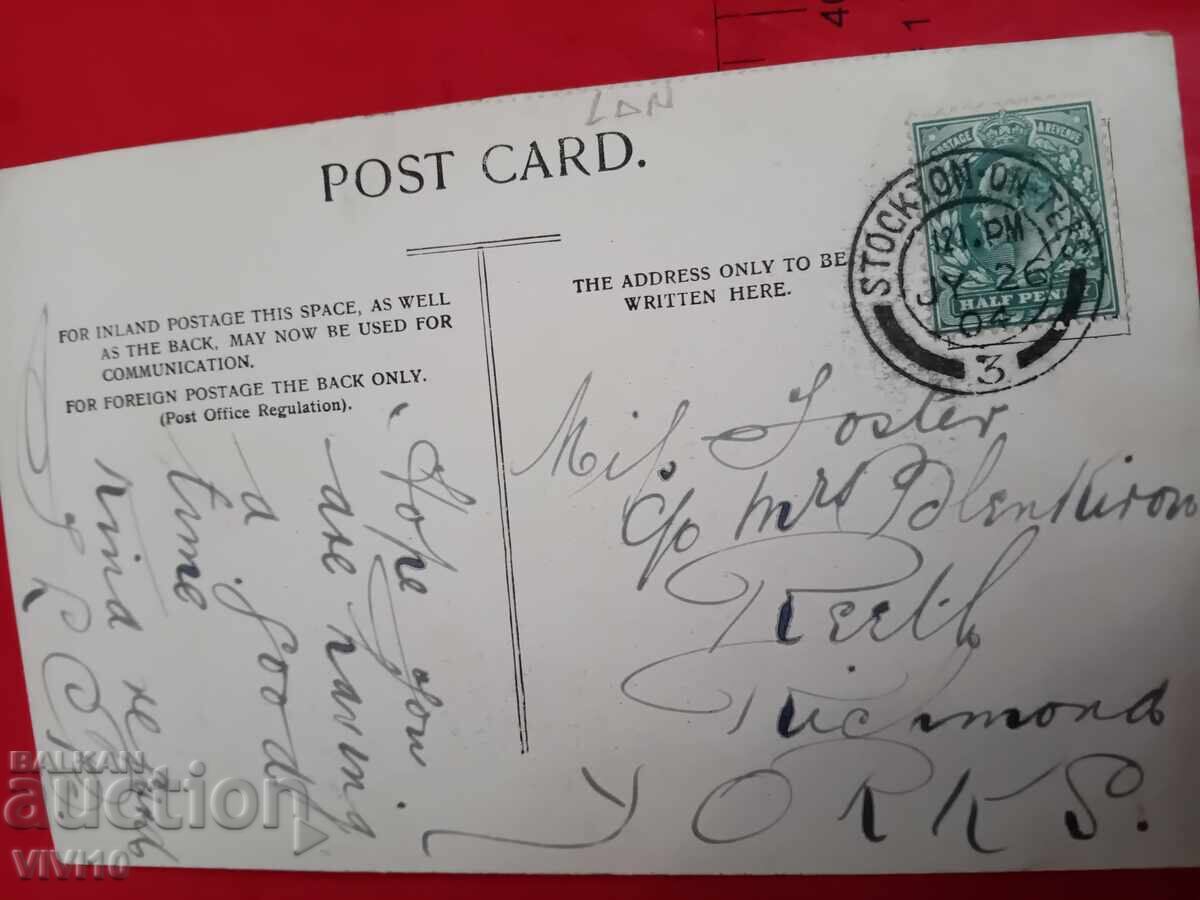 LDN
POST CARD.
FOR INLAND POSTAGE THIS SPACE, AS WELL
AS THE BACK, MAY NOW BE USED FOR
COMMUNICATION.
FOR FOREIGN POSTAGE THE BACK ONLY.
(Post Office Regulation).
THE ADDRESS ONLY TO BE
WRITTEN HERE.
POSTAGE & REVENUE
HALF PENNY
STOCKTON ON TEES
PM
JY 26
04
3
Hope you
are having
a good
time
kind re
Miss Foster
c/o Mrs Blenkiron
Reeth
Richmond
YORKS.
40
1
BALKAN
auction
VIVI10